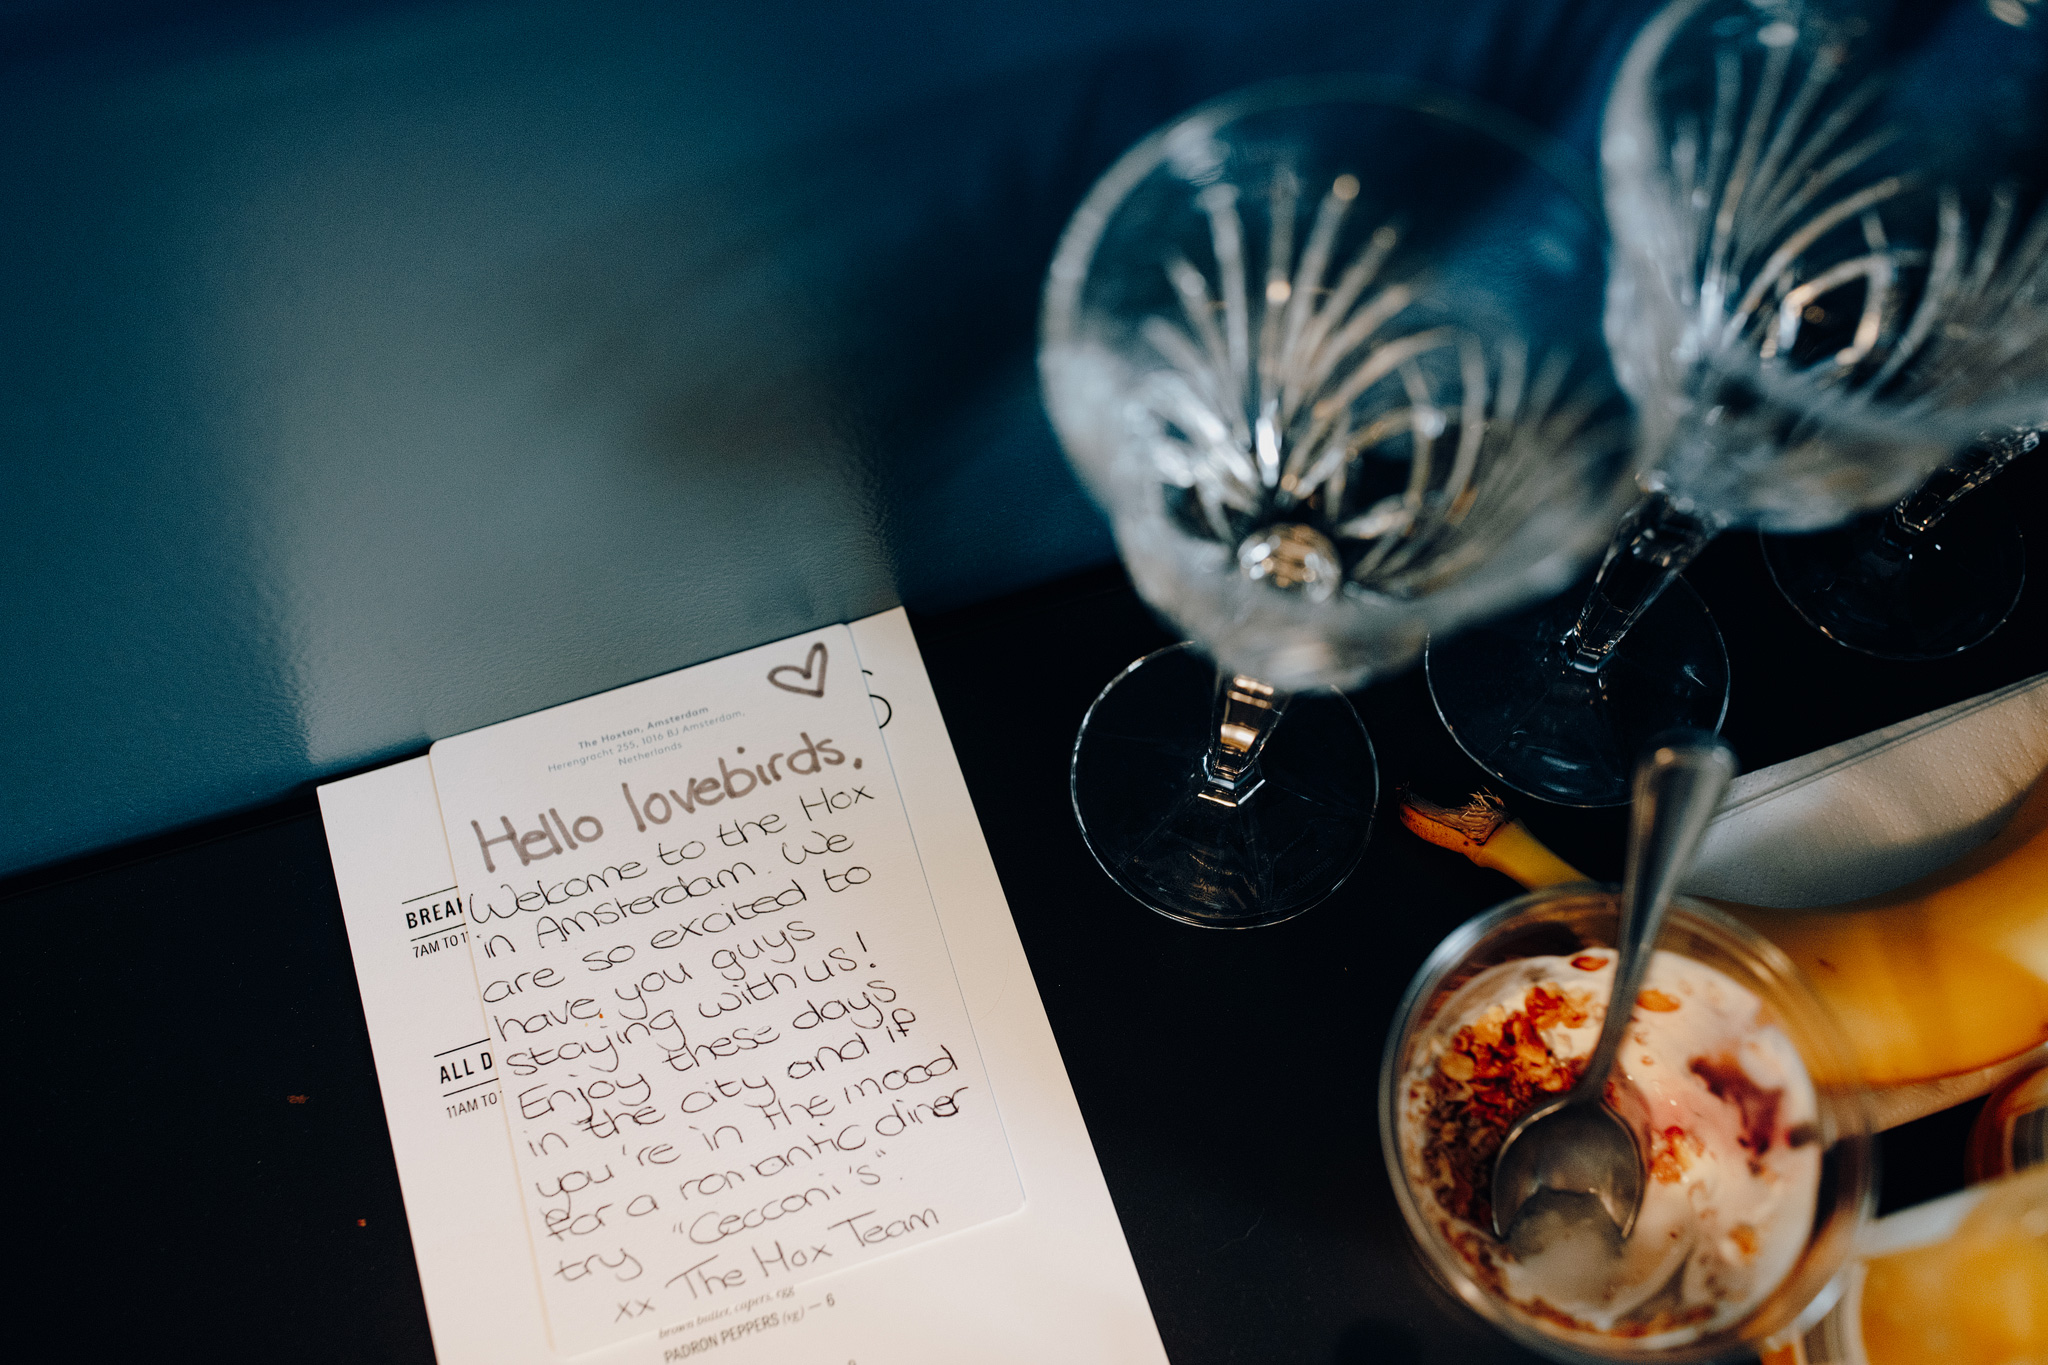 The Hoxton, Amsterdam
Herengracht 255, 1016 BJ Amsterdam,
Netherlands
Hello lovebirds,
Welcome to the Hox
in Amsterdam. We
are so excited to
have you guys
staying with us!
Enjoy these days
in the city and if
you're in the mood
for a romantic diner
try "Cecconi's".
xx The Hox Team
S
BREA
7AM TO 1
ALL D
11AM TO
brown butter, capers, egg
PADRON PEPPERS (vg) — 6